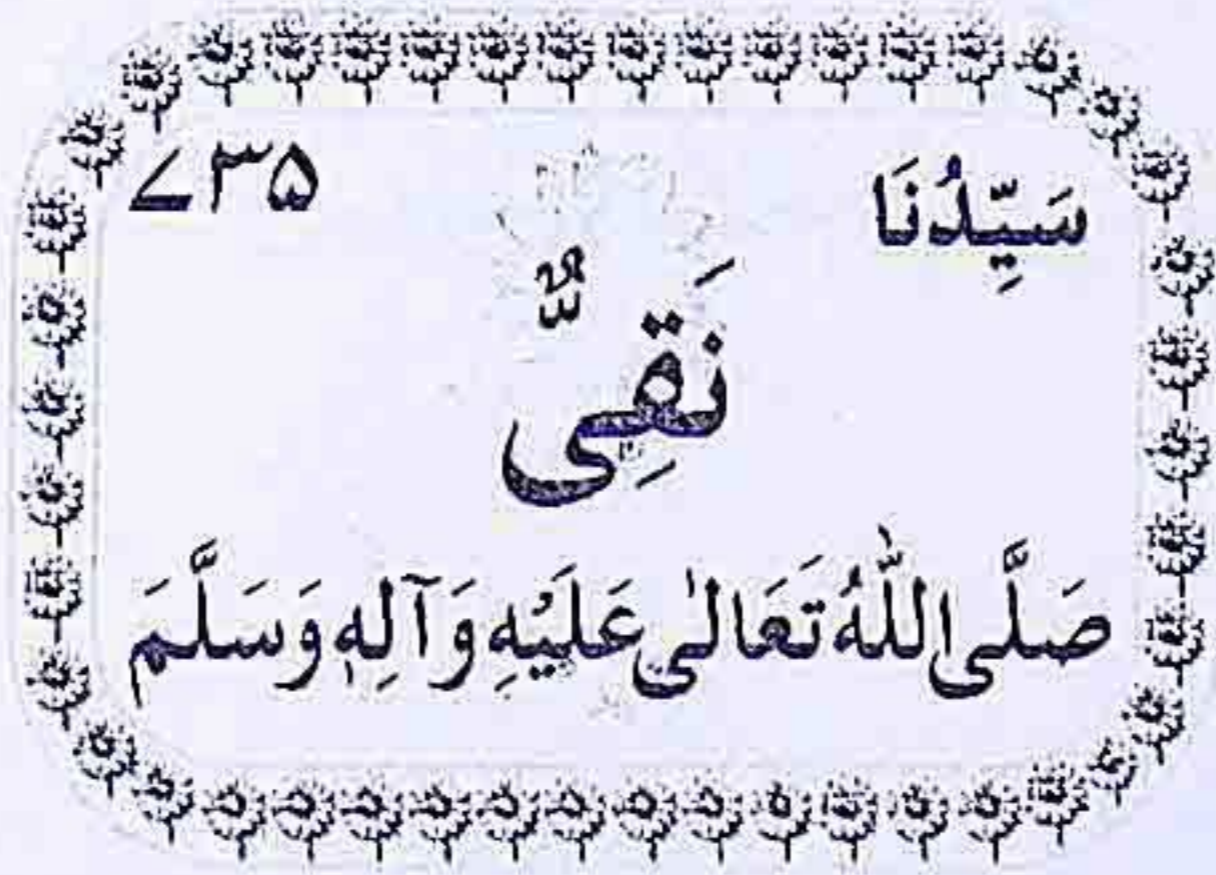 سَيِّدُنَا ۷۳۵
نَقِىٌّ
صَلَّى اللّٰهُ تَعَالٰى عَلَيْهِ وَآلِهٖ وَسَلَّمَ